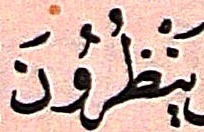 يَنْظُرُوْنَ